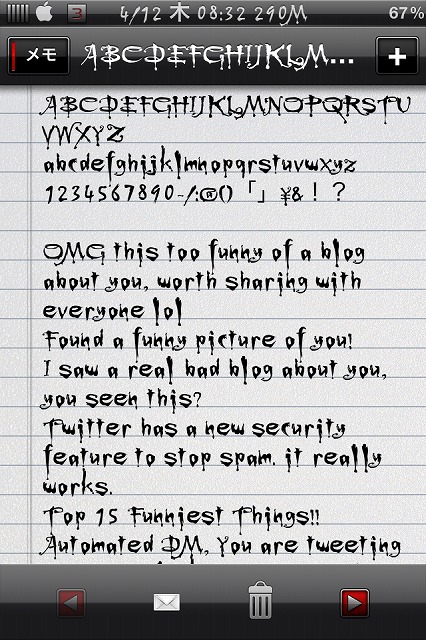 3 4/12 木 08:32 290M 67%
メモ ABCDEFGHIJKLM... +
ABCDEFGHIJKLMNOPQRSTU
VWXYZ
abcdefghijklmnopqrstuvwxyz
1234567890-/:@()「」¥&！？
OMG this too funny of a blog
about you, worth sharing with
everyone lol
Found a funny picture of you!
I saw a real bad blog about you,
you seen this?
Twitter has a new security
feature to stop spam. it really
works.
Top 15 Funniest Things!!
Automated DM, You are tweeting